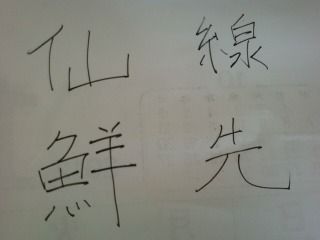 仙 線
鮮 先